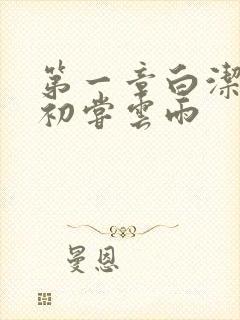 第一章白潔
初嘗雲雨
曼恩